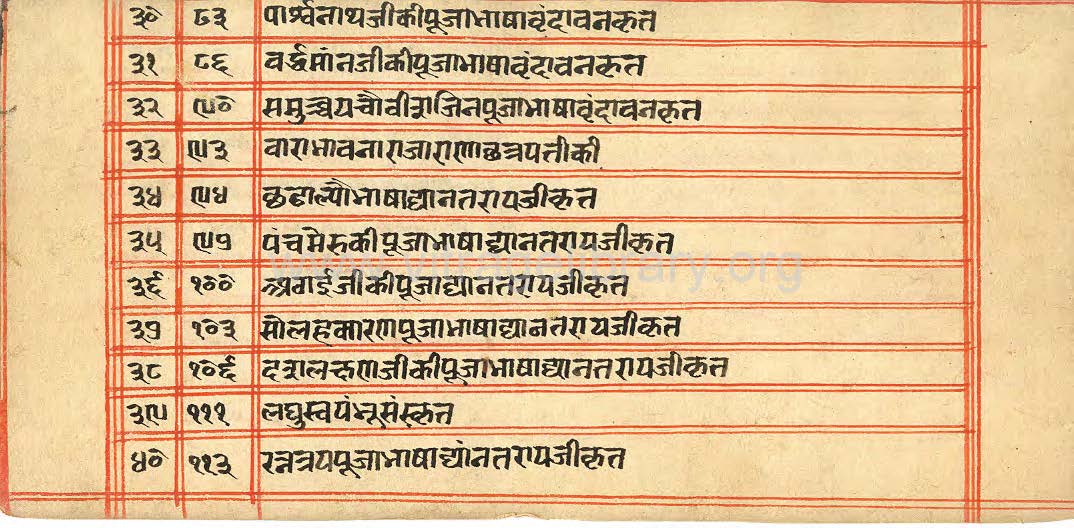 ३० ८३ पार्श्वनाथजीकीपूजाभाषावृंदावनकृत
३१ ८६ वर्द्धमांनजीकीपूजाभाषावृंदावनकृत
३२ ९० समुच्चयचौवीशजिनपूजाभाषावृंदावनकृत
३३ ९३ वाराभावनाराजाराणाछत्रपतीकी
३४ ९४ भाषाद्यानतरायजीकृत
३५ ९७ पंचमेरुकीपूजाभाषाद्यानतरायजीकृत
३६ १०० अठाईजीकीपूजाद्यानतरायजीकृत
३७ १०३ सोलहकारणपूजाभाषाद्यानतरायजीकृत
३८ १०६ दशलक्षणजीकीपूजाभाषाद्यानतरायजीकृत
३९ १११ लघुस्वयंभूसंस्कृत
४० ११३ रत्नत्रयपूजाभाषाद्यांनतरायजीकृत